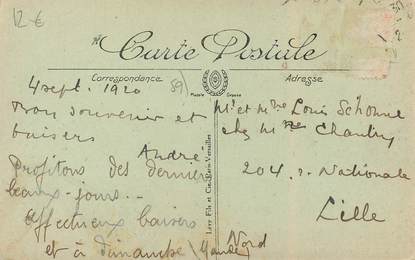 12 €
Carte Postale
Correspondance
Adresse
59
4 sept. 1920
Bon souvenir et
baisers
André
Profitons des derniers
beaux-jours...
Affectueux baisers
et à Dimanche
Levy Fils et Cie, Paris
Mr et Mme Louis
chez Mme
204, r. Nationale
Lille
Nord